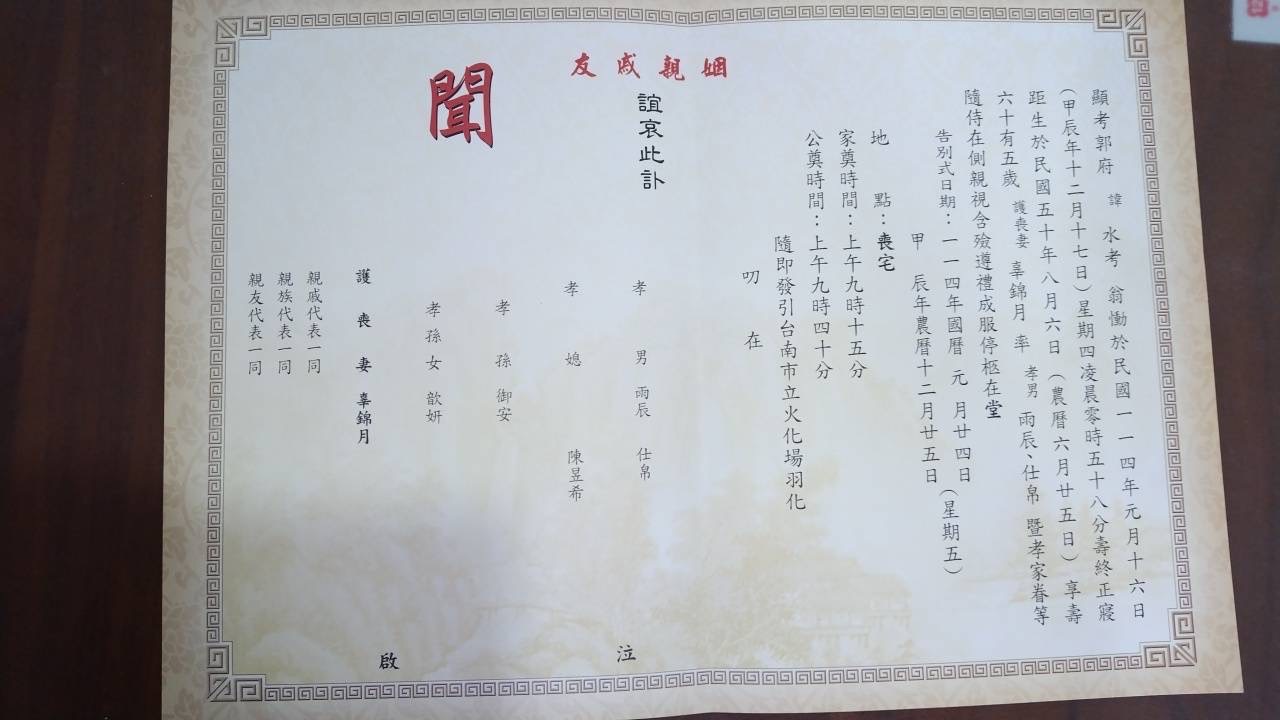 顯考郭府 諱 水考 翁慟於民國一一四年元月十六日
（甲辰年十二月十七日）星期四凌晨零時五十八分壽終正寢
距生於民國五十年八月六日（農曆六月廿五日） 享壽
六十有五歲 護喪妻 辜錦月 率 孝男 雨辰、仕帛 暨孝家眷等
隨侍在側親視含殮遵禮成服停柩在堂
告別式日期：一一四年國曆 元 月廿四日（星期五）
甲 辰年農曆十二月廿五日
地 點：喪宅
家奠時間：上午九時十五分
公奠時間：上午九時四十分
隨即發引台南市立火化場羽化
叨 在
姻親戚友
誼哀此訃
聞
孝 男 雨辰 仕帛
孝 媳 陳昱希
泣
孝 孫 御安
孝 孫 女 歆妍
護 喪 妻 辜錦月
啟
親戚代表一同
親族代表一同
親友代表一同